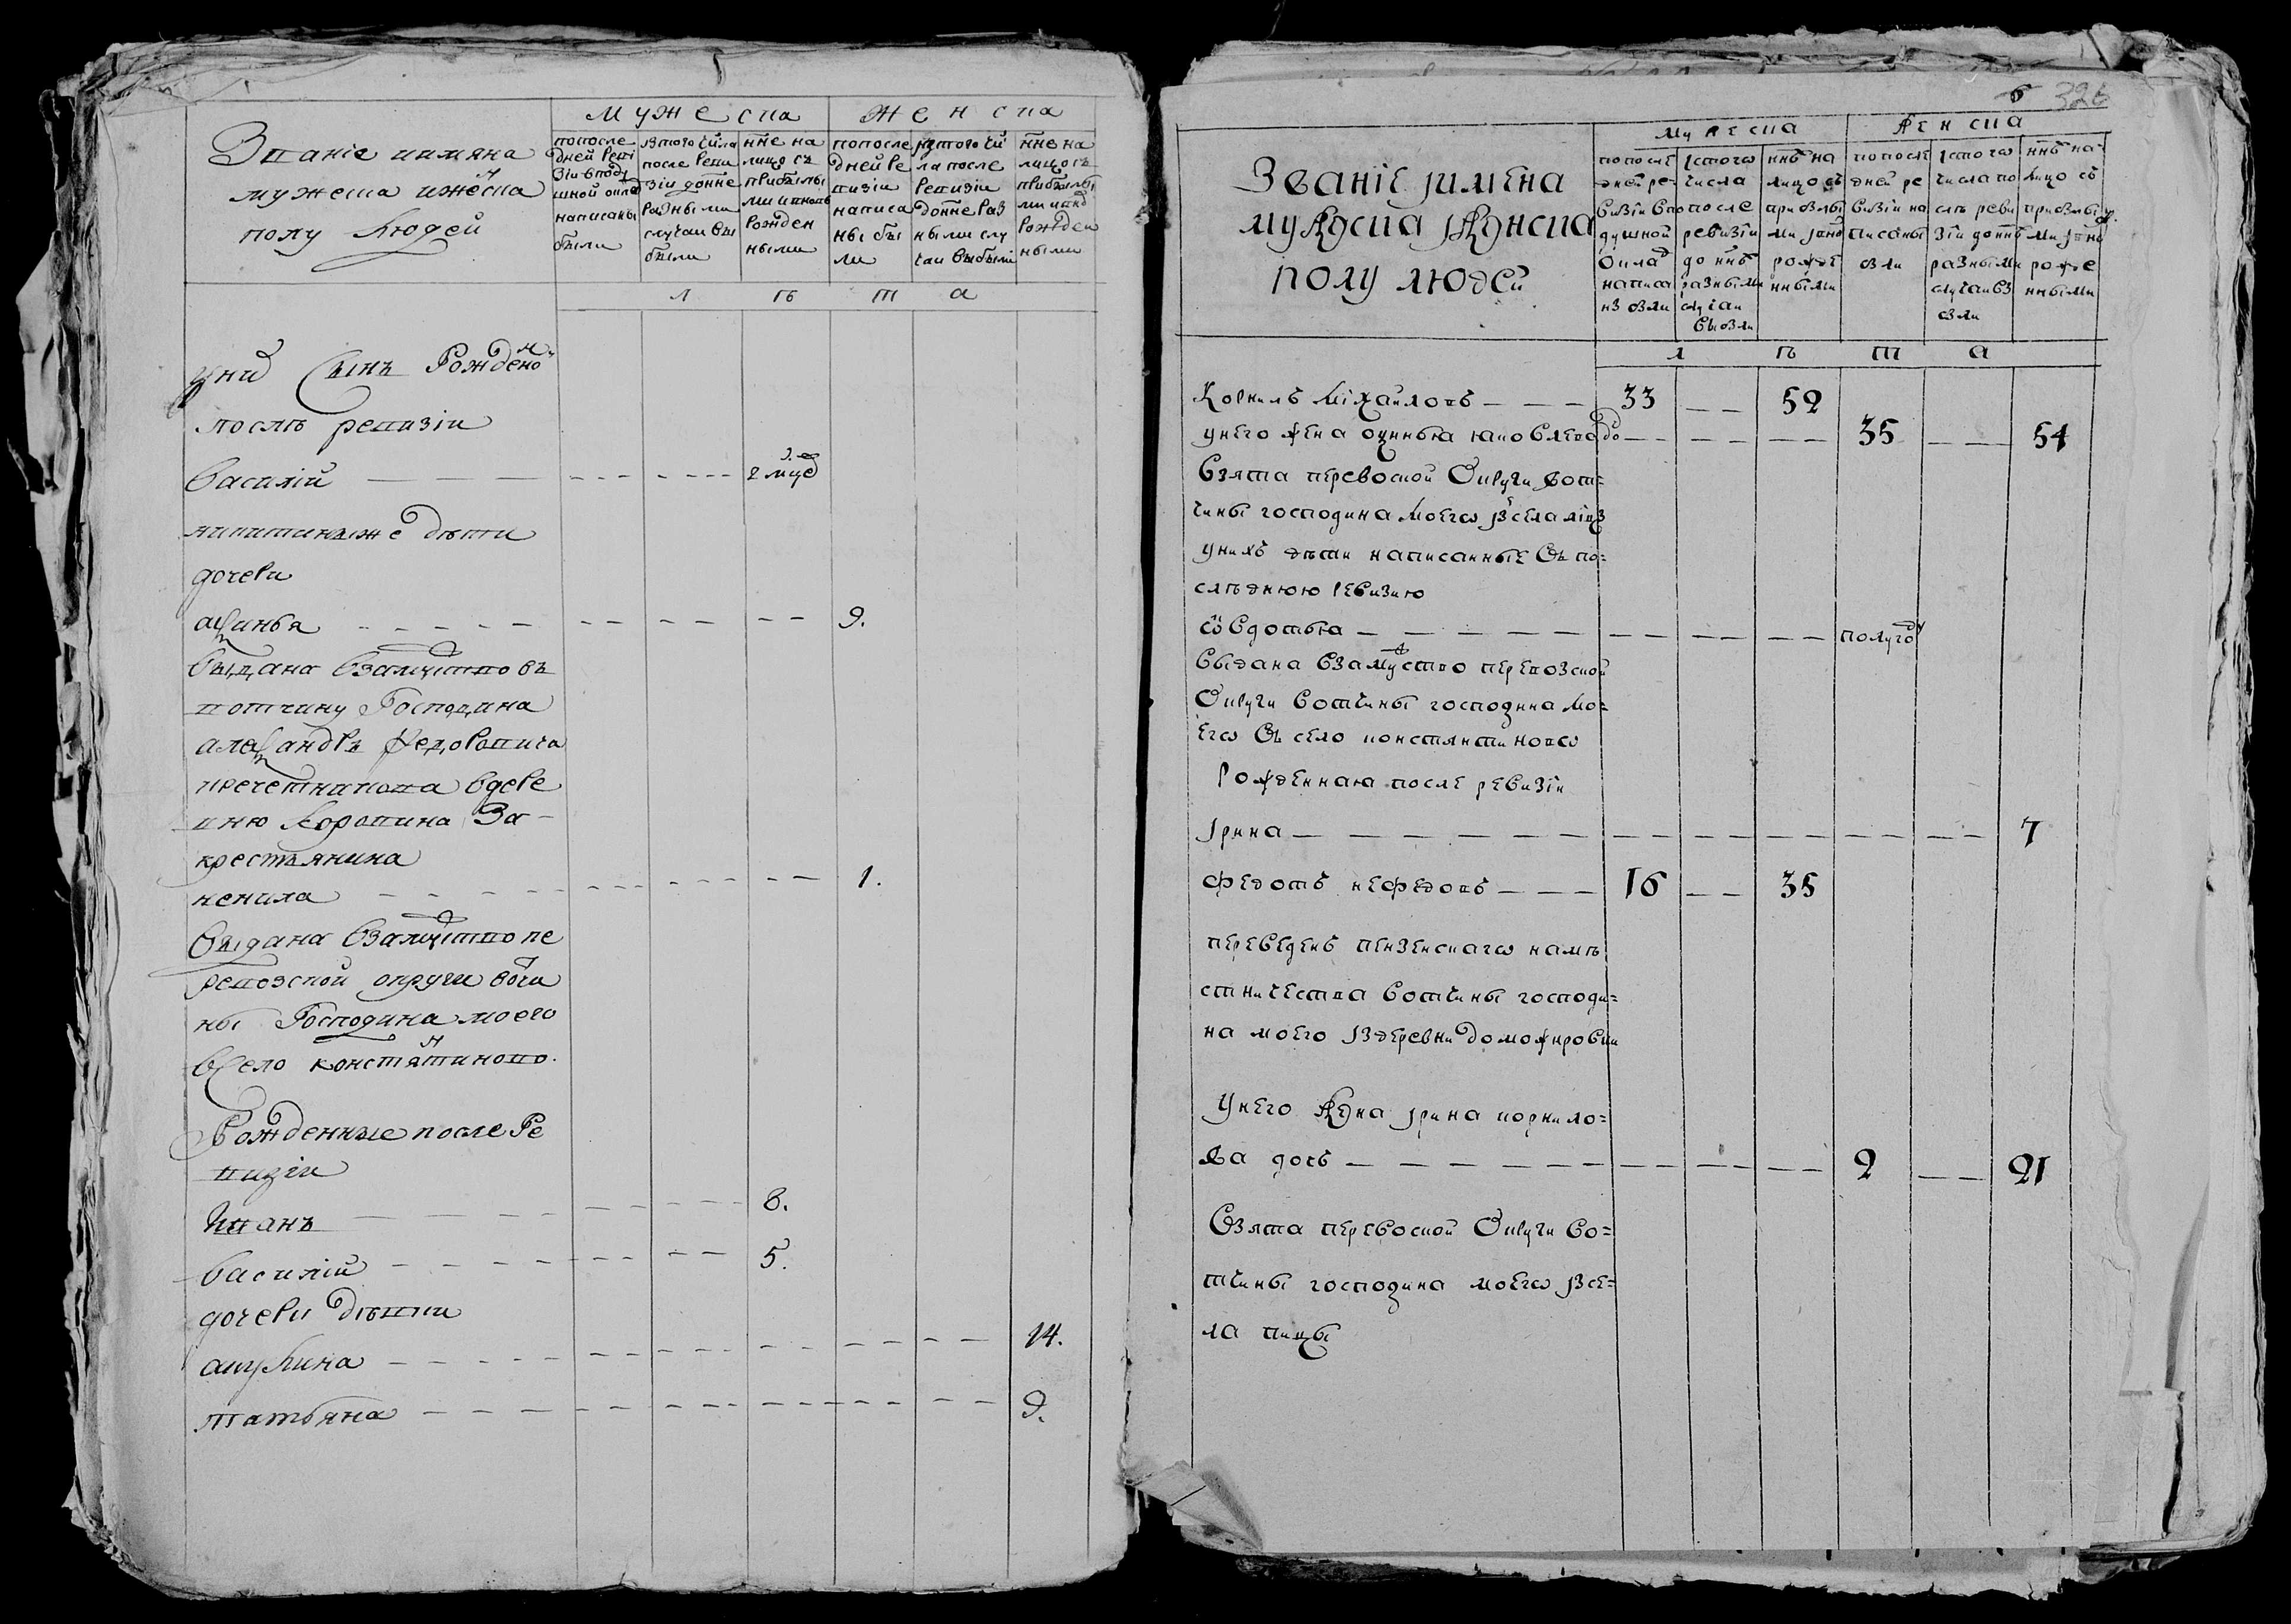 Званіе имяна
мужеска иженска
полу людей
мужеска
женска
попосле
дней реви
зіи вподу
шной оклад
написаны
были
изтого числа
после реви
зіи донне
разными
случаи вы
были
нне на
лицо съ
прибылы
ми ивновь
рожден
ными
попосле
дней ре
визіи
написа
ны бы
ли
изтого чи
ла после
ревизіи
донне раз
ными слу
чаи выбыли
нне на
лицо съ
прибылы
ми ивнов
рожден
ными
лѣта
уних сынъ рожденой
послѣ ревизіи
василій
2 мцо
никитиныже дѣти
дочери
аксинья 9.
выдана взамужство въ
вотчину Господина
александръ федоровича
пречетникова вдере
вню коровина За
крестьянина
ненила 1.
выдана взамужство пе
ревозской округи вотчи
ны Господина моего
всело константиново.
Рожденные после Ре
визіи
Иванъ 8.
василій 5.
дочери дѣвки
акулина 14.
татьяна 9.
6 326
Званіе имена
мужеска иженска
полу людей
мужеска
женска
попослѣ
дней ре
визіи впо
душной
оклад
написа
нз были
истого
числа
после
ревизіи
до ннѣ
разными
случаи
выбыли
ннѣ на
лицо съ
прибылы
ми ивно
рожде
нными
попослѣ
дней ре
визіи на
писаны
были
истого
числа по
слѣ реви
зіи доннѣ
разными
случаи вы
были
ннѣ на
лицо съ
прибылы
ми ивно
рожде
нными
лѣта
Корнилъ Міхайловъ 33 52
унего жена 35 54
Взята перевоской Округи вот=
чины господина моего изсела
унихъ дѣти написанные въ по=
слѣднюю ревизию
овдотья полуго
выдана взамужство перевозской
Округи вотчины господина мо=
его въ село константиново
Рожденная после ревизіи
Ірина 7
Федотъ нефедовъ 16 35
переведенъ пензенскаго намѣ
стничества вотчины господи=
на моего издеревни доможировки
Унего жена ірина корнило=
ва дочь 2 21
Взята перевоской Округи во=
тчины господина моего изсе=
ла пицы